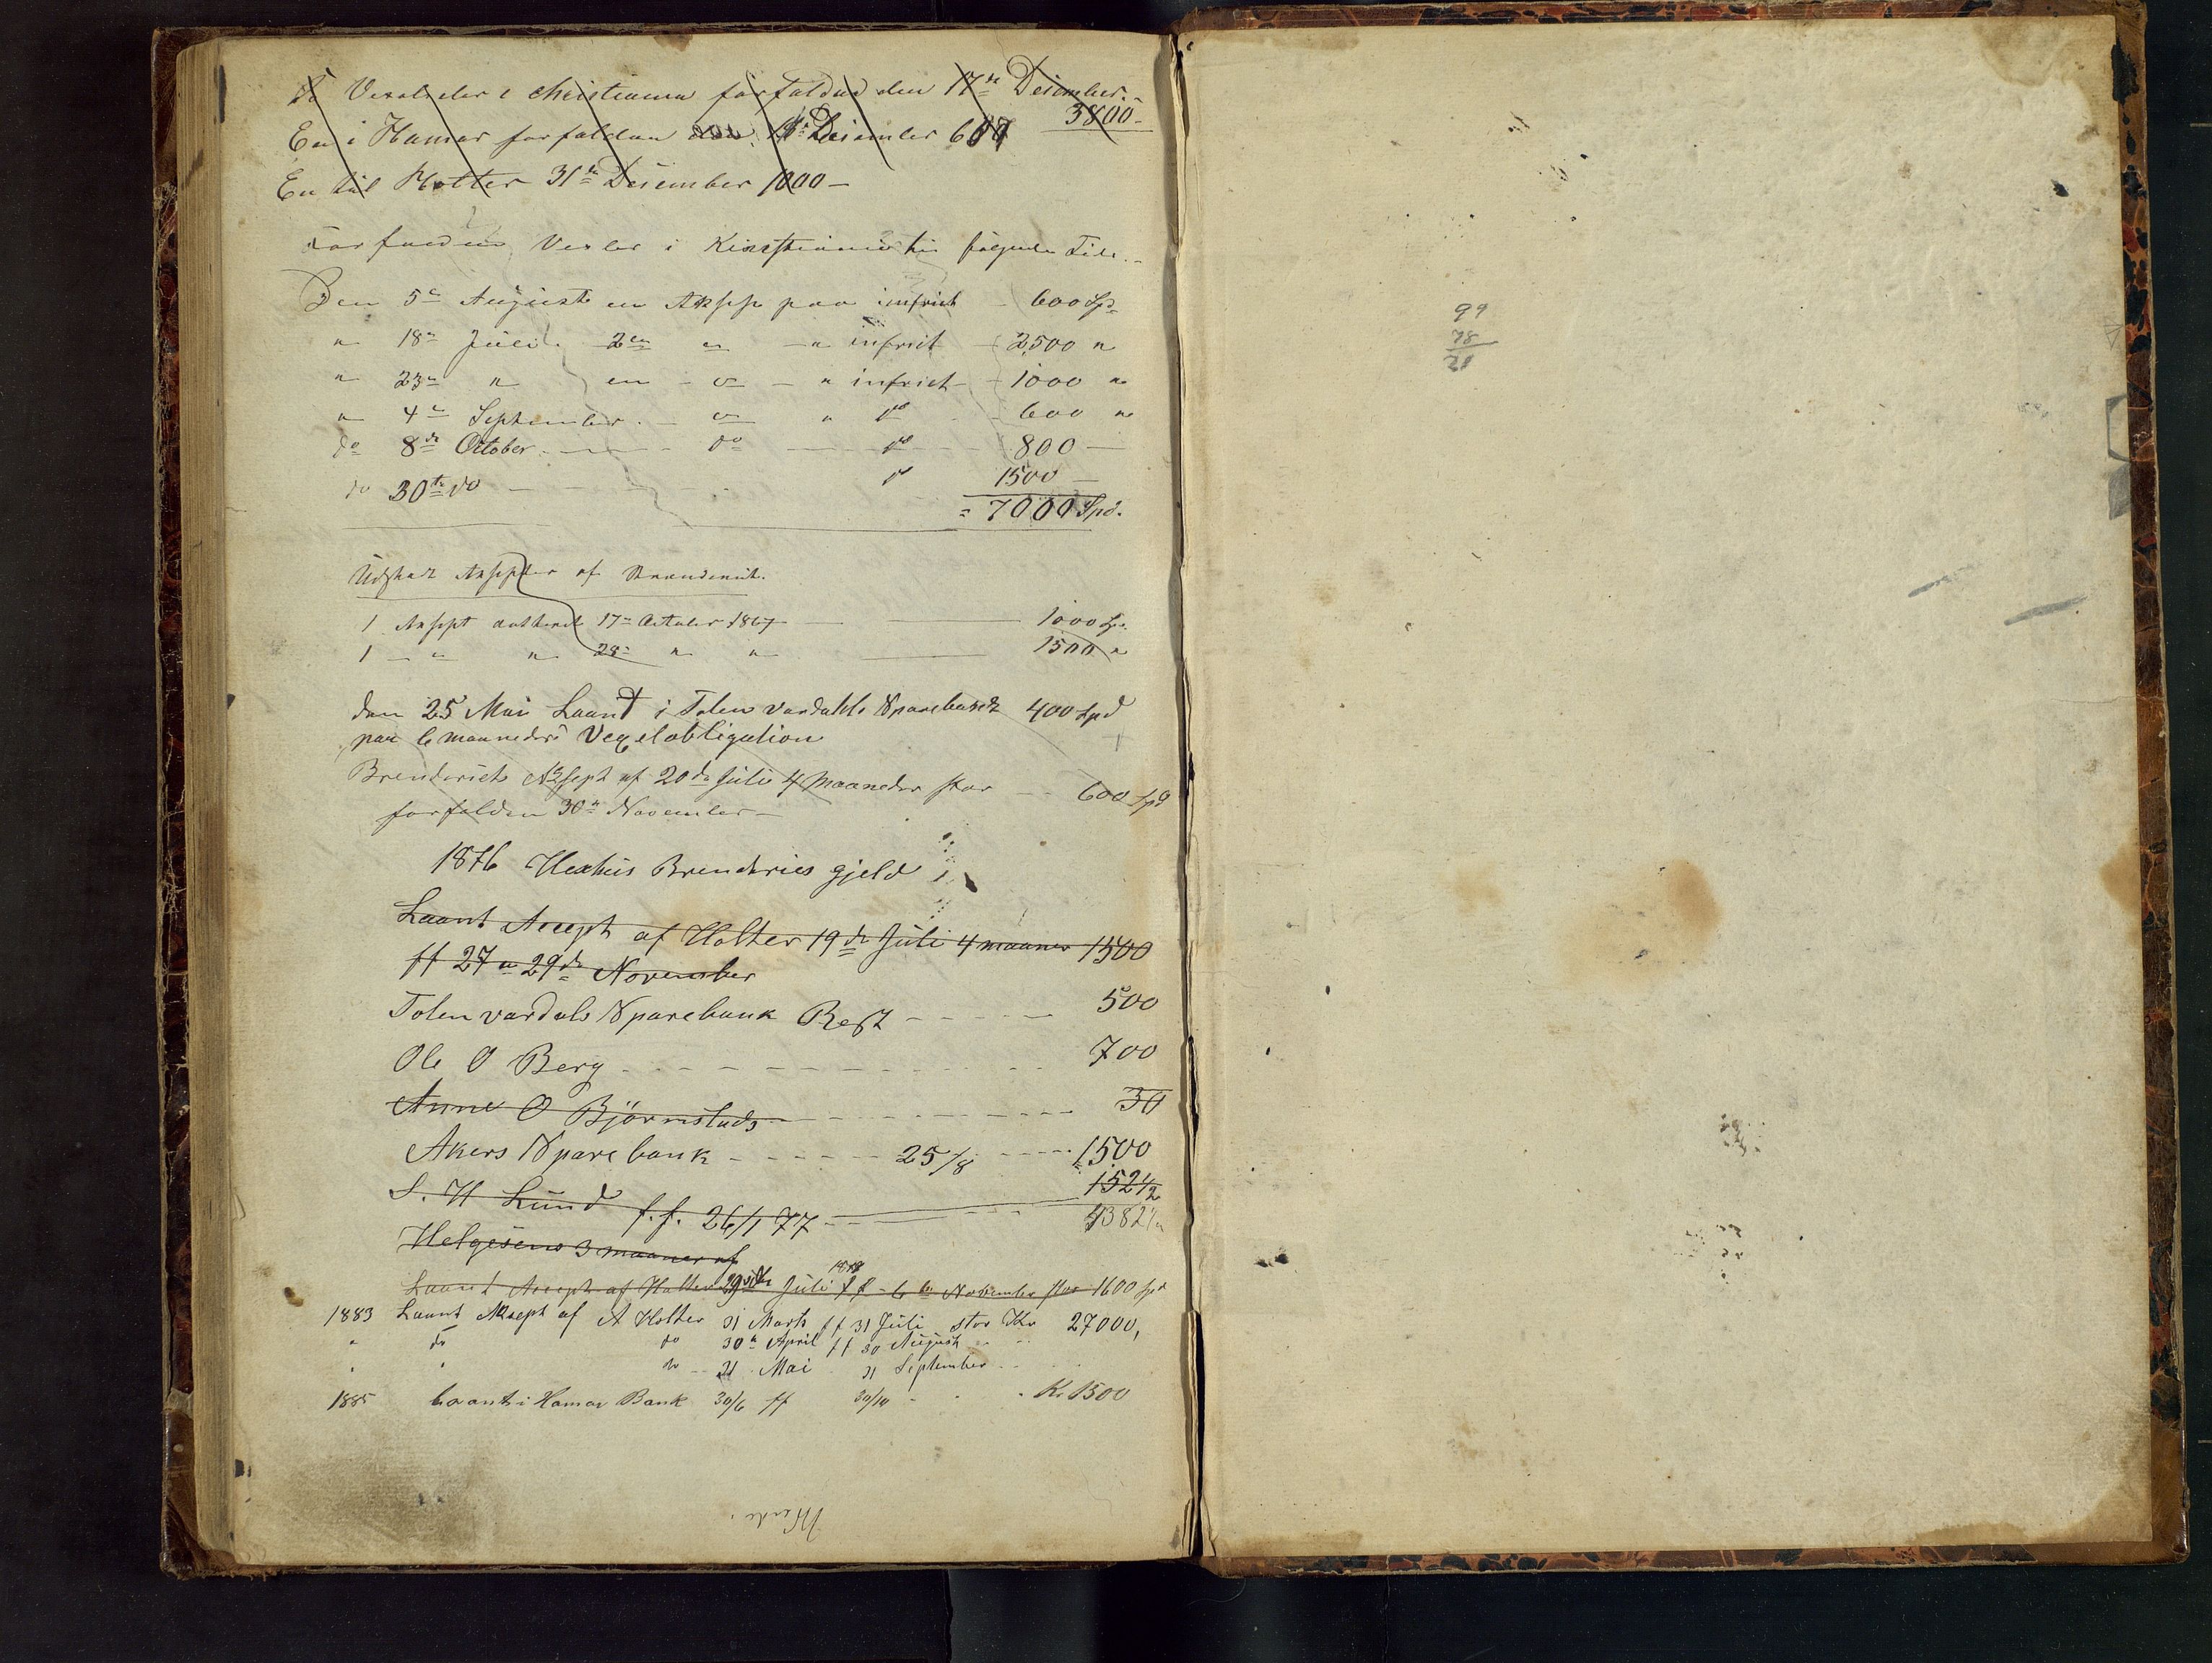 To Vexeler i Christiania forfalden den 17de Desember.
3800-
En i Hamar forfalden Desember 600
En til Holter 31te Desember 1000 –
Forfaldne Vexler i Kirstiania til følgende Tide.
Den 5te August en Aksept paa indfriet 600 Sp
" 18de Juli 2en " – " indfriet 2,500 "
" 23de " en – " – " indfriet – 1000 "
" 4de September – " " do 600 "
do 8de October – do – do 800 –
do 30te do – do 1500 –
= 7000 Spd.
Udstedt Aksepter af Brenderiet.
1 Aksept dateret 17de Octuber 1867 – 1000 Sp.
1 – " " 28de " " – 1500 "
den 25 Mai Laant i Toten vardahls Sparebank 400 Spd
paa 6 maaneders Vexelobligation
Brenderiets Aksept af 20de Juli 4 Maaneder stor – 600 Spd
forfalden 30te November –
1876 Brenderies gjeld
Laant Accept af Holter 19de Juli 4 maaner 1500
ff 27 a 29de November
Toten vardals Sparebank Rest – 500
Ole O Berg – 700
Anne O Bjørnstads – 30
Akers Sparebank – 25/8 – 1500
S. H Lund f.f. 26/1 77 – 152 1/2
4382 1/2
Helgesens 3 maaner af
Laant Accept af Holter 29de Juli ff – 6te November stor 1600 Spd
1883 Laant Aksept af A Holter 31 Marts ff 31 Juli stor Kr 27000,
" do do 30te April ff 30 August
" " do 31 Mai 31 September
1885 Laant i Hamar Bank 30/6 ff 30/10 – Kr 1500
99
78
21